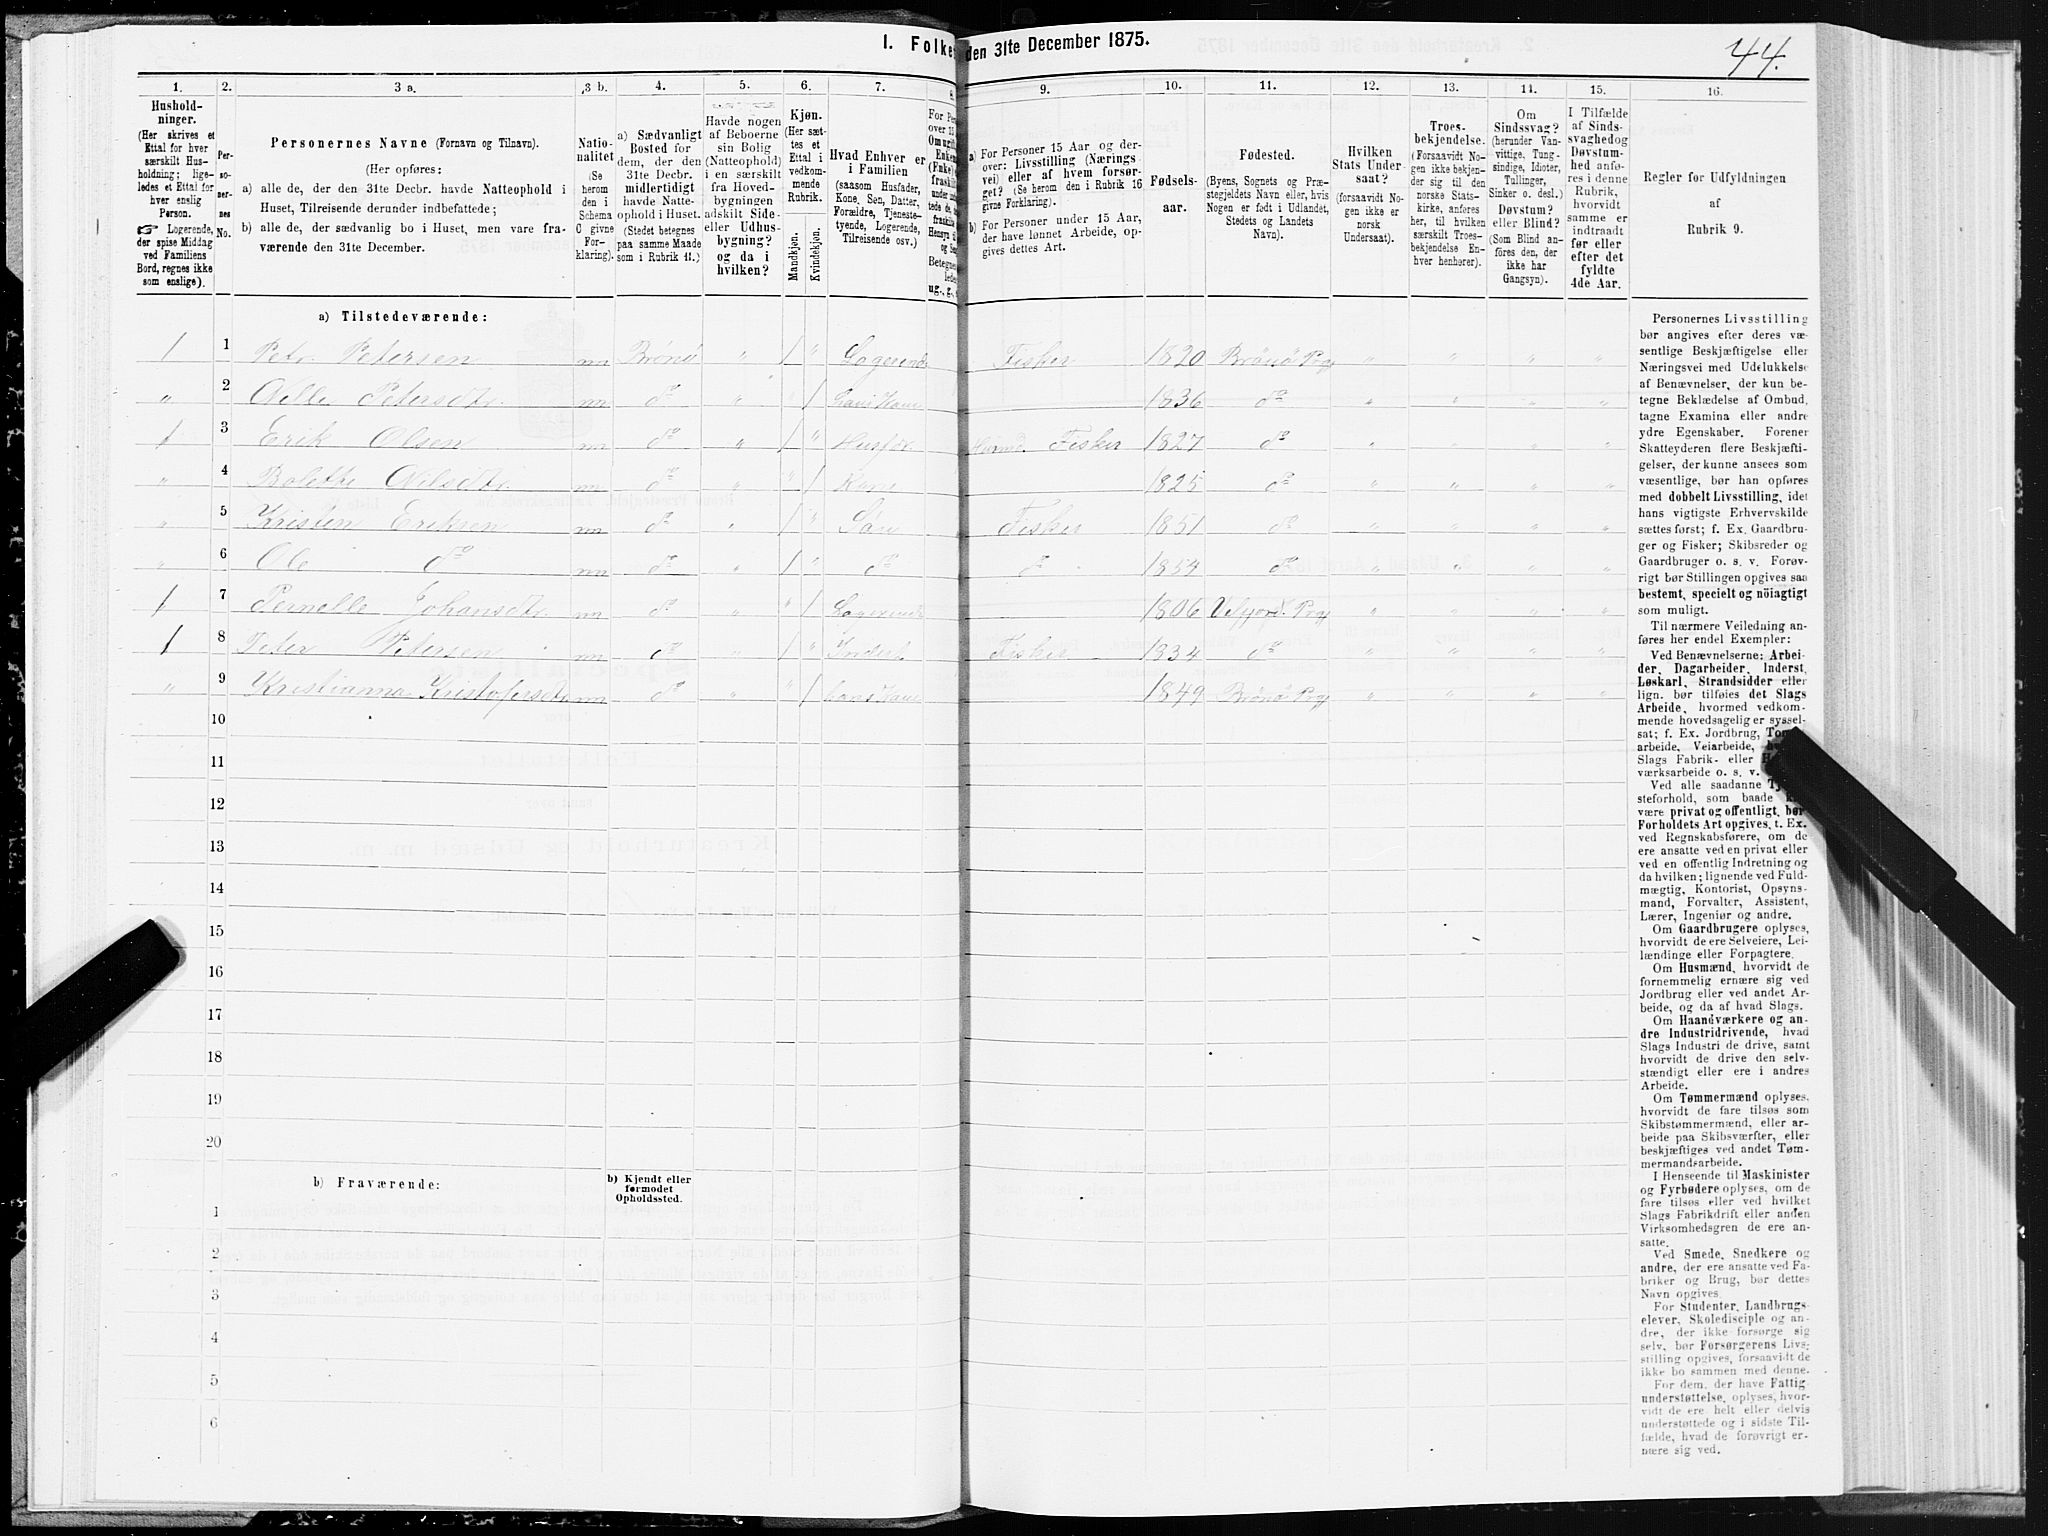 I. Folke den 31te December 1875.
44.
1.
2.
3 a.
3 b.
4.
5.
6.
7.
8.
9.
10.
11.
12.
13.
14.
15.
16.
Hushold-
ninger.
(Her skrives et
Ettal for hver
særskilt Hus-
holdning; lige-
ledes et Ettal for
hver enslig
Person.
☞ Logerende,
der spise Middag
ved Familiens
Bord, regnes ikke
som enslige).
Per-
so-
ner-
nes
No.
Personernes Navne (Fornavn og Tilnavn).
(Her opføres:
a) alle de, der den 31te Decbr. havde Natteophold i
Huset, Tilreisende derunder indbefattede;
b) alle de, der sædvanlig bo i Huset, men vare fra-
værende den 31te December.
Natio-
nalitet
(Se
herom
den i
Schema
C givne
For-
klaring).
a) Sædvanligt
Bosted for
dem, der den
31te Decbr.
midlertidigt
havde Natte-
ophold i Huset.
(Stedet betegnes
paa samme Maade
som i Rubrik 11.)
Havde nogen
af Beboerne
sin Bolig
(Natteophold)
i en særskilt
fra Hoved-
bygningen
adskilt Side-
eller Udhus-
bygning?
og da i
hvilken?
Kjøn.
(Her sæt-
tes et
Ettal i
vedkom-
mende
Rubrik.
Mandkjøn.
Kvindekjøn.
Hvad Enhver er
i Familien
(saasom Husfader,
Kone, Søn, Datter,
Forældre, Tjeneste-
tyende, Logerende,
Tilreisende osv.)
a) For Personer 15 Aar og der-
over: Livsstilling (Nærings-
vei) eller af hvem forsør-
get? (Se herom den i Rubrik 16
givne Forklaring).
b) For Personer under 15 Aar,
der have lønnet Arbeide, op-
gives dettes Art.
Fødsels-
aar.
Fødested.
(Byens, Sognets og Præ-
stegjeldets Navn eller, hvis
Nogen er født i Udlandet,
Stedets og Landets
Navn).
Hvilken
Stats Under-
saat?
(forsaavidt No-
gen ikke er
norsk
Undersaat).
Troes-
bekjendelse.
(Forsaavidt No-
gen ikke bekjen-
der sig til den
norske Stats-
kirke, anføres
her, til hvilken
særskilt Troes-
bekjendelse En-
hver henhører).
Om
Sindssvag?
(herunder Van-
vittige, Tung-
sindige, Idioter,
Tullinger,
Sinker o. desl.)
Døvstum?
eller Blind?
(Som Blind an-
føres den, der
ikke har
Gangsyn).
I Tilfælde
af Sinds-
svaghed og
Døvstum-
hed anfø-
res i denne
Rubrik,
hvorvidt
samme er
indtraadt
før eller
efter det
fyldte
4de Aar.
Regler for Udfyldningen
af
Rubrik 9.
a) Tilstedeværende:
1 1 Petr. Petersen nn Brönö „ 1 „ Logerende Fisker 1820 Brönö Prgj „ „ „ „
„ 2 Petersdtr. nn do „ „ 1 1836 do „ „ „ „
1 3 Erik Olsen nn do „ 1 „ Husfdr. Fisker 1827 do „ „ „ „
„ 4 Bolette Nilsdtr. nn do „ „ 1 Kone 1825 do „ „ „ „
„ 5 Kristen Eriksen nn do „ 1 „ Sön Fisker 1851 do „ „ „ „
„ 6 Ole do nn do „ 1 „ do do 1854 do „ „ „ „
1 7 Pernelle Johansdtr. nn do „ „ 1 Logerende 1806 Velfjord Prgj „ „ „ „
1 8 Peter Petersen nn do „ 1 „ Inderst Fisker 1834 do „ „ „ „
„ 9 Kristianna Kristofersdtr nn do „ „ 1 hans Kone 1849 Brönö Prgj „ „ „ „
10
11
12
13
14
15
16
17
18
19
20
b) Fraværende:
b) Kjendt eller
formodet
Opholdssted.
1
2
3
4
5
6
Personernes Livsstilling
bør angives efter deres væ-
sentlige Beskjæftigelse eller
Næringsvei med Udelukkelse
af Benævnelser, der kun be-
tegne Beklædelse af Ombud,
tagne Examina eller andre
ydre Egenskaber. Forener
Skatteyderen flere Beskjæfti-
gelser, der kunne ansees som
væsentlige, bør han opføres
med dobbelt Livsstilling, idet
hans vigtigste Erhvervskilde
sættes først; f. Ex. Gaardbru-
ger og Fisker; Skibsreder og
Gaardbruger o. s. v. Forøv-
rigt bør Stillingen opgives saa
bestemt, specielt og nöiagtigt
som muligt.
Til nærmere Veiledning an-
føres her endel Exempler:
Ved Benævnelserne: Arbei-
der, Dagarbeider, Inderst,
Løskarl, Strandsidder eller
lign. bør tilføies det Slags
Arbeide, hvormed vedkom-
mende hovedsagelig er syssel-
sat; f. Ex. Jordbrug,
arbeide, Veiarbeide,
Slags Fabrik- eller
værksarbeide o. s. v.
Ved alle saadanne
steforhold, som baade
være privat og offentligt, bør
Forholdets Art opgives, t. Ex.
ved Regnskabsførere, om de
ere ansatte ved en privat eller
ved en offentlig Indretning og
da hvilken; lignende ved Fuld-
mægtig, Kontorist, Opsyns-
mand, Forvalter, Assistent,
Lærer, Ingeniør og andre.
Om Gaardbrugere oplyses,
hvorvidt de ere Selveiere, Lei-
lændinge eller Forpagtere.
Om Husmænd, hvorvidt de
fornemmelig ernære sig ved
Jordbrug eller ved andet Ar-
beide, og da af hvad Slags.
Om Haandværkere og an-
dre Industridrivende, hvad
Slags Industri de drive, samt
hvorvidt de drive den selv-
stændigt eller ere i andres
Arbeide.
Om Tømmermænd oplyses,
hvorvidt de fare tilsøs som
Skibstømmermænd, eller ar-
beide paa Skibsværfter, eller
beskjæftiges ved andet Tøm-
mermandsarbeide.
I Henseende til Maskinister
og Fyrbødere oplyses, om de
fare tilsøs eller ved hvilket
Slags Fabrikdrift eller anden
Virksomhedsgren de ere an-
satte.
Ved Smede, Snedkere og
andre, der ere ansatte ved Fa-
briker og Brug, bør dettes
Navn opgives.
For Studenter, Landbrugs-
elever, Skoledisciple og an-
dre, der ikke forsørge sig
selv, bør Forsørgerens Livs-
stilling opgives, forsaavidt de
ikke bo sammen med denne.
For dem, der have Fattig-
understøttelse, oplyses, hvor-
vidt de ere helt eller delvis
understøttede og i sidste Til-
fælde, hvad de forøvrigt er-
nære sig ved.